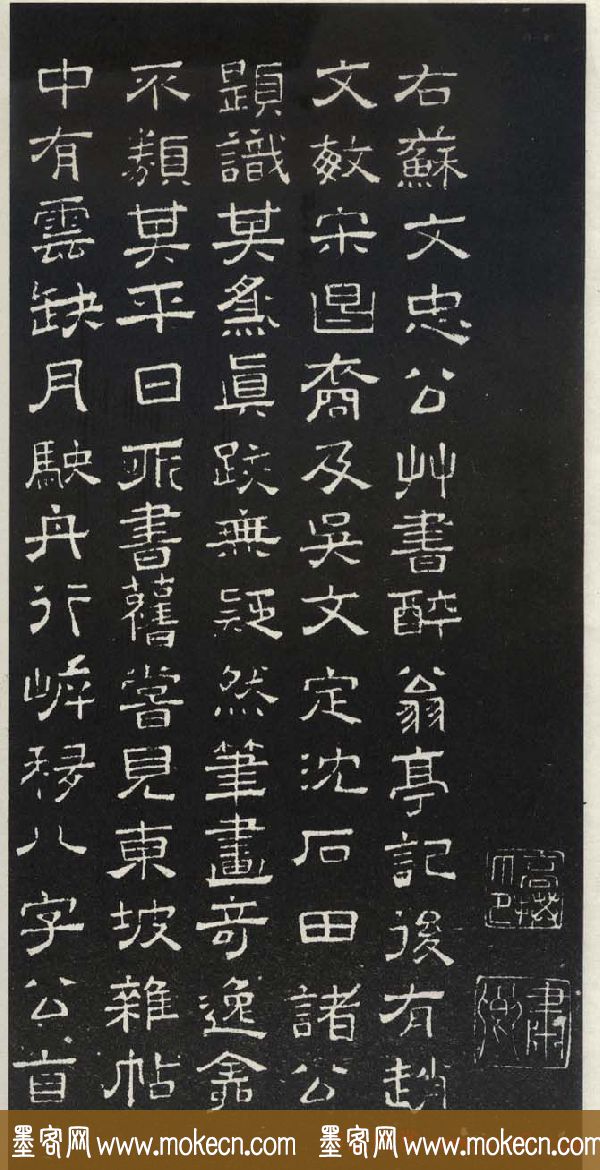 右蘇文忠公艸書醉翁亭記後有趙
文敏宋昌裔及吳文定沈石田諸公
題識其為真跡無疑然筆畫奇逸
不類其平日所書舊嘗見東坡雜帖
中有雲缺月駛舟行岸移八字公自
墨客网 www.mokecn.com 墨客网 www.mokecn.com